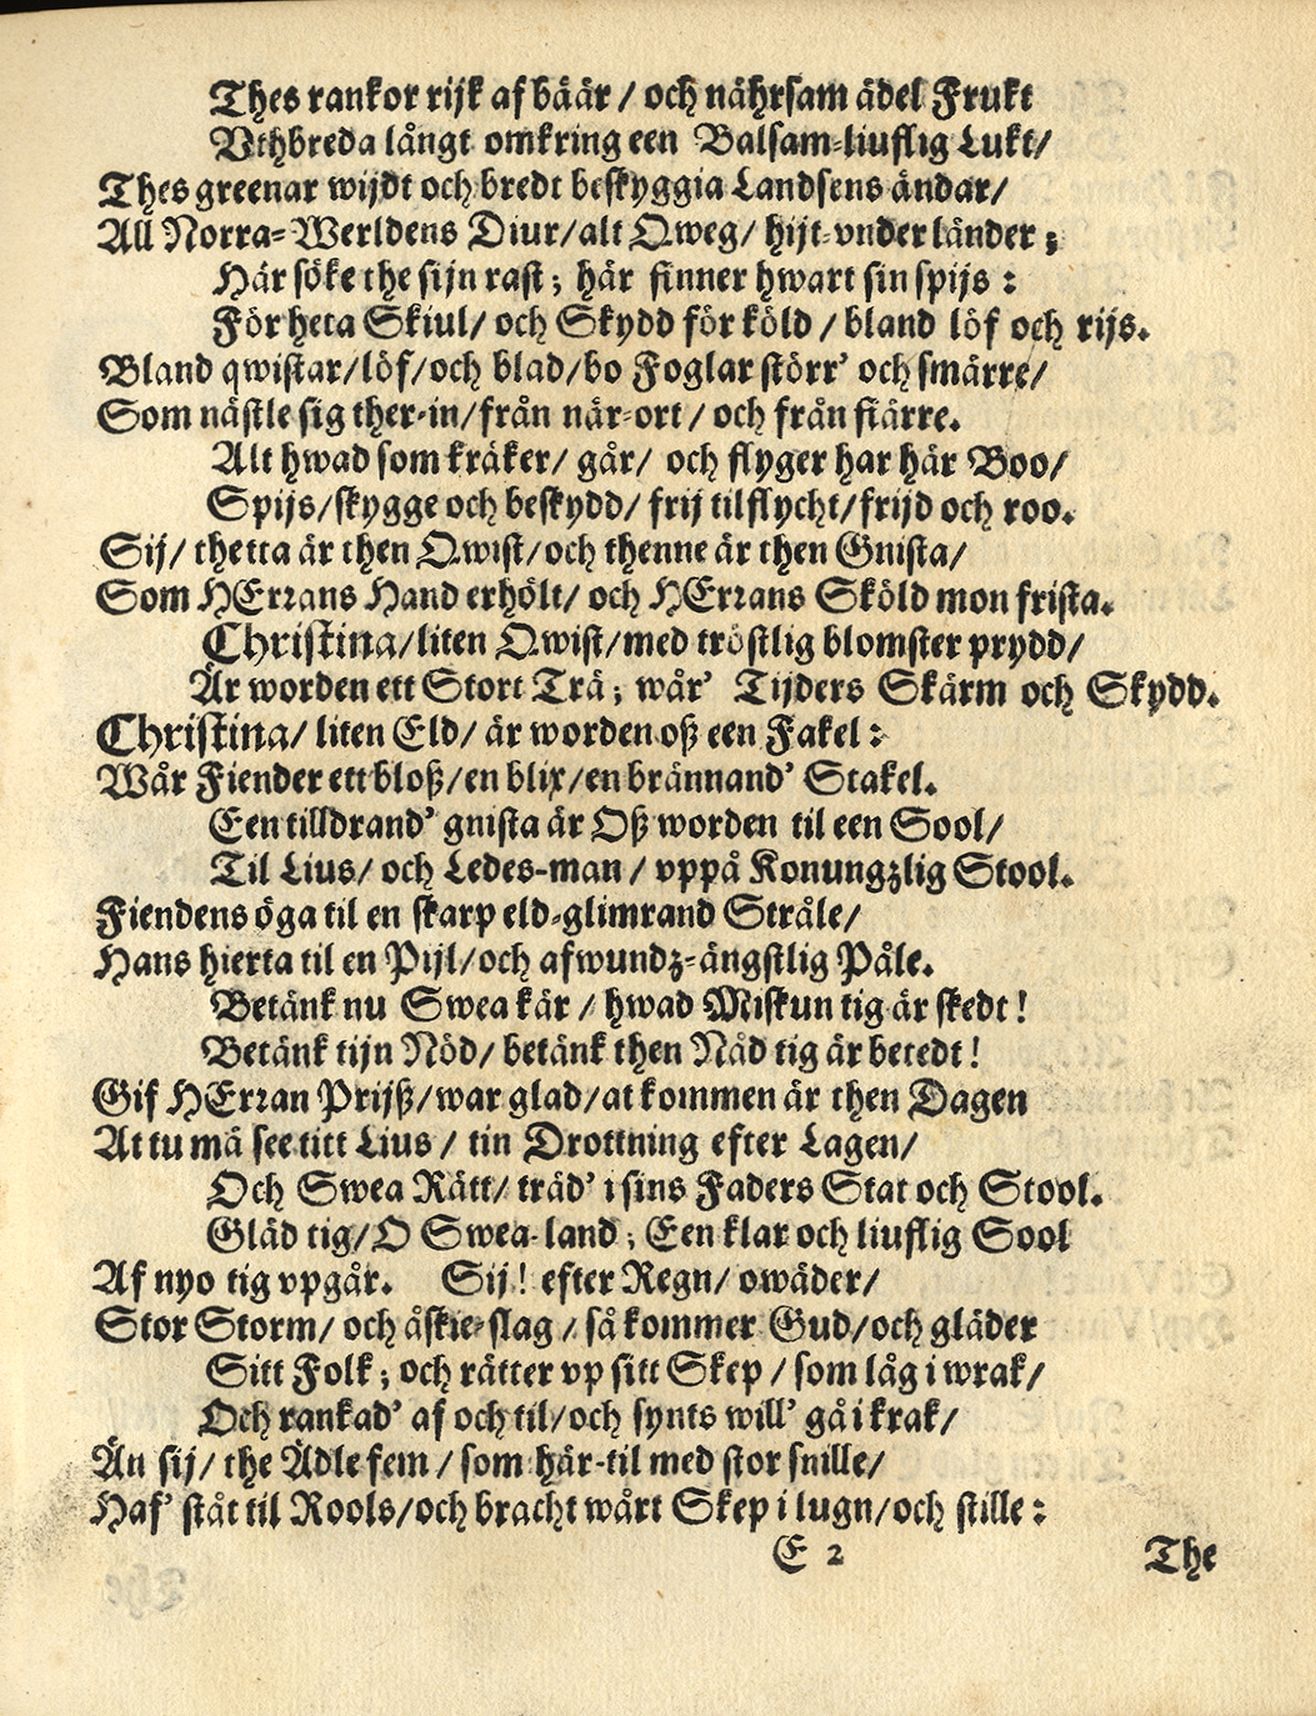 Thes rankor rijk af bäär / och nährsam ädel Frukt
Vthbreda långt omkring een Balsam-liuflig Lukt/
Thes greenar wijdt och bredt beskyggia Landsens ändar/
All Norra-Werldens Diur/alt Qweg/ hijt-vnder länder;
Här söke the sijn rast; här finner hwart sin spijs:
För heta Skiul/ och Skydd för köld / bland löf och rijs.
Bland qwistar/löf/och blad/bo Foglar störr' och smärre/
Som nästle sig ther-in/från när-ort / och från fiärre.
Alt hwad som kräker/ går/ och flyger har här Boo/
Spijs/skygge och beskydd/ frij tilflycht/frijd och roo.
Sij/ thetta är then Qwist/och thenne är then Gnista/
Som HErrans Hand erhölt/ och HErrans Sköld mon frista.
Christina/liten Qwist/med tröstlig blomster prydd/
Är worden ett Stort Trä; wår' Tijders Skärm och Skydd.
Christina/ liten Eld/ är worden oß een Fakel:
Wår Fiender ett bloß/en blix/en brännand' Stakel.
Een tilldrand' gnista är Oß worden til een Sool/
Til Lius/ och Ledes-man / vppå Konungzlig Stool.
Fiendens öga til en skarp eld-glimrand Stråle/
Hans hierta til en Pijl/och afwundz-ängstlig Påle.
Betänk nu Swea kär / hwad Miskun tig är skedt!
Betänk tijn Nöd/ betänk then Nåd tig är betedt!
Gif HErran Prijß/war glad/at kommen är then Dagen
At tu må see titt Lius / tin Drottning efter Lagen/
Och Swea Rätt/ träd' i sins Faders Stat och Stool.
Gläd tig/O Swea-land; Een klar och liuflig Sool
Af nyo tig vpgår. Sij! efter Regn/ owäder/
Stor Storm/ och åskie-slag / så kommer Gud/och gläder
Sitt Folk; och rätter vp sitt Skep / som låg i wrak/
Och rankad' af och til/och synts will' gå i krak/
Än sij/ the Ädle fem / som här-til med stor snille/
Haf' ståt til Rools/och bracht wårt Skep i lugn/och stille:
E 2 The